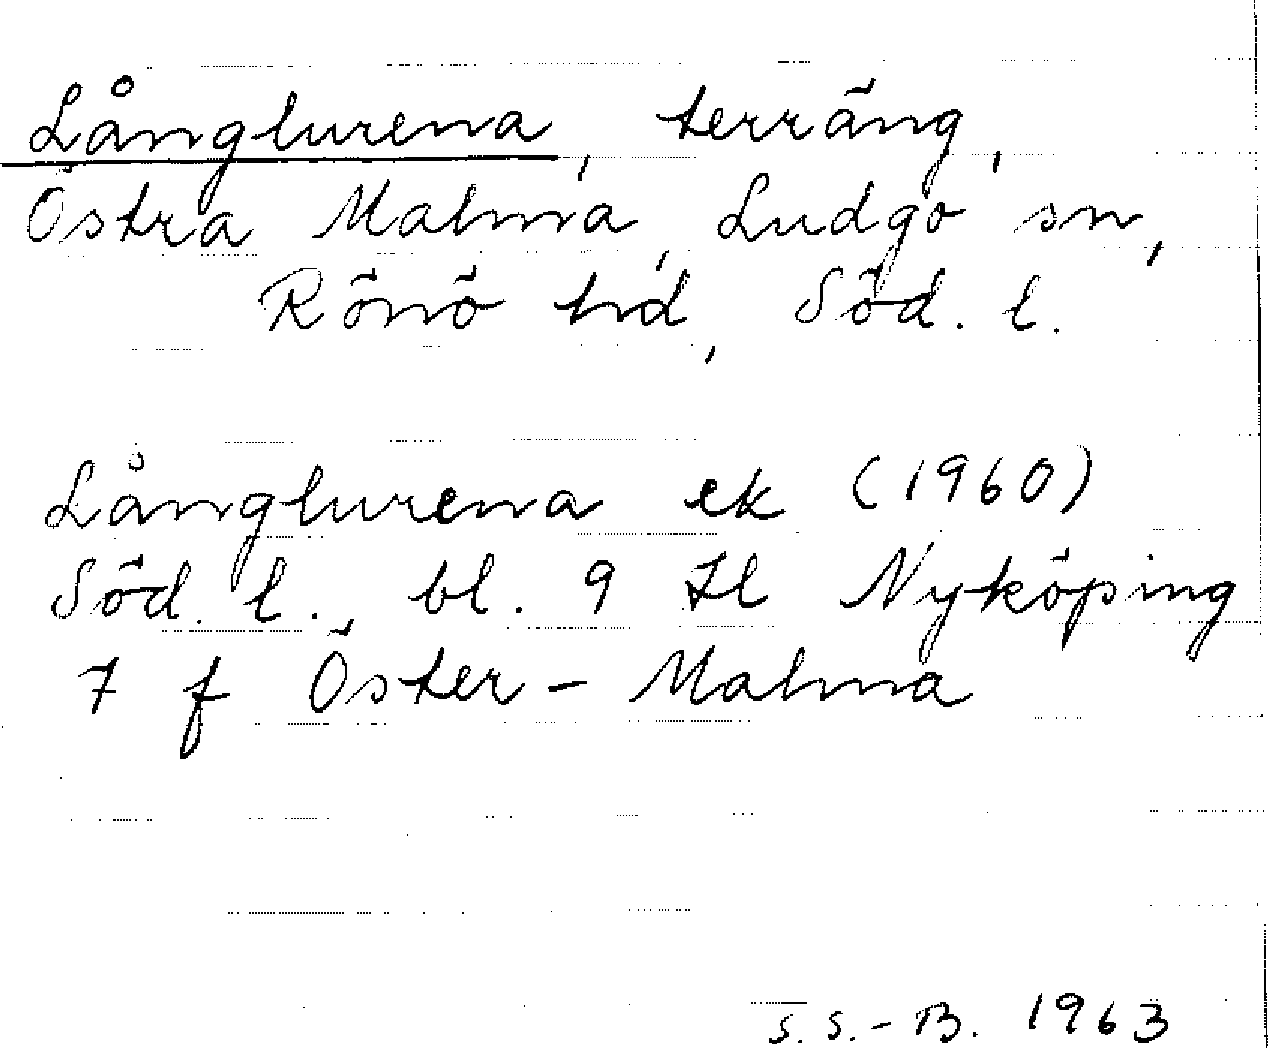 Långlurena, terräng,
Östra Malma, Ludgo sn,
Rönö hd, Söd. l.
Långlurena ek (1960)
Söd. l. bl. 9 Il Nyköping
7 f Öster-Malma
S. S.-B. 1963